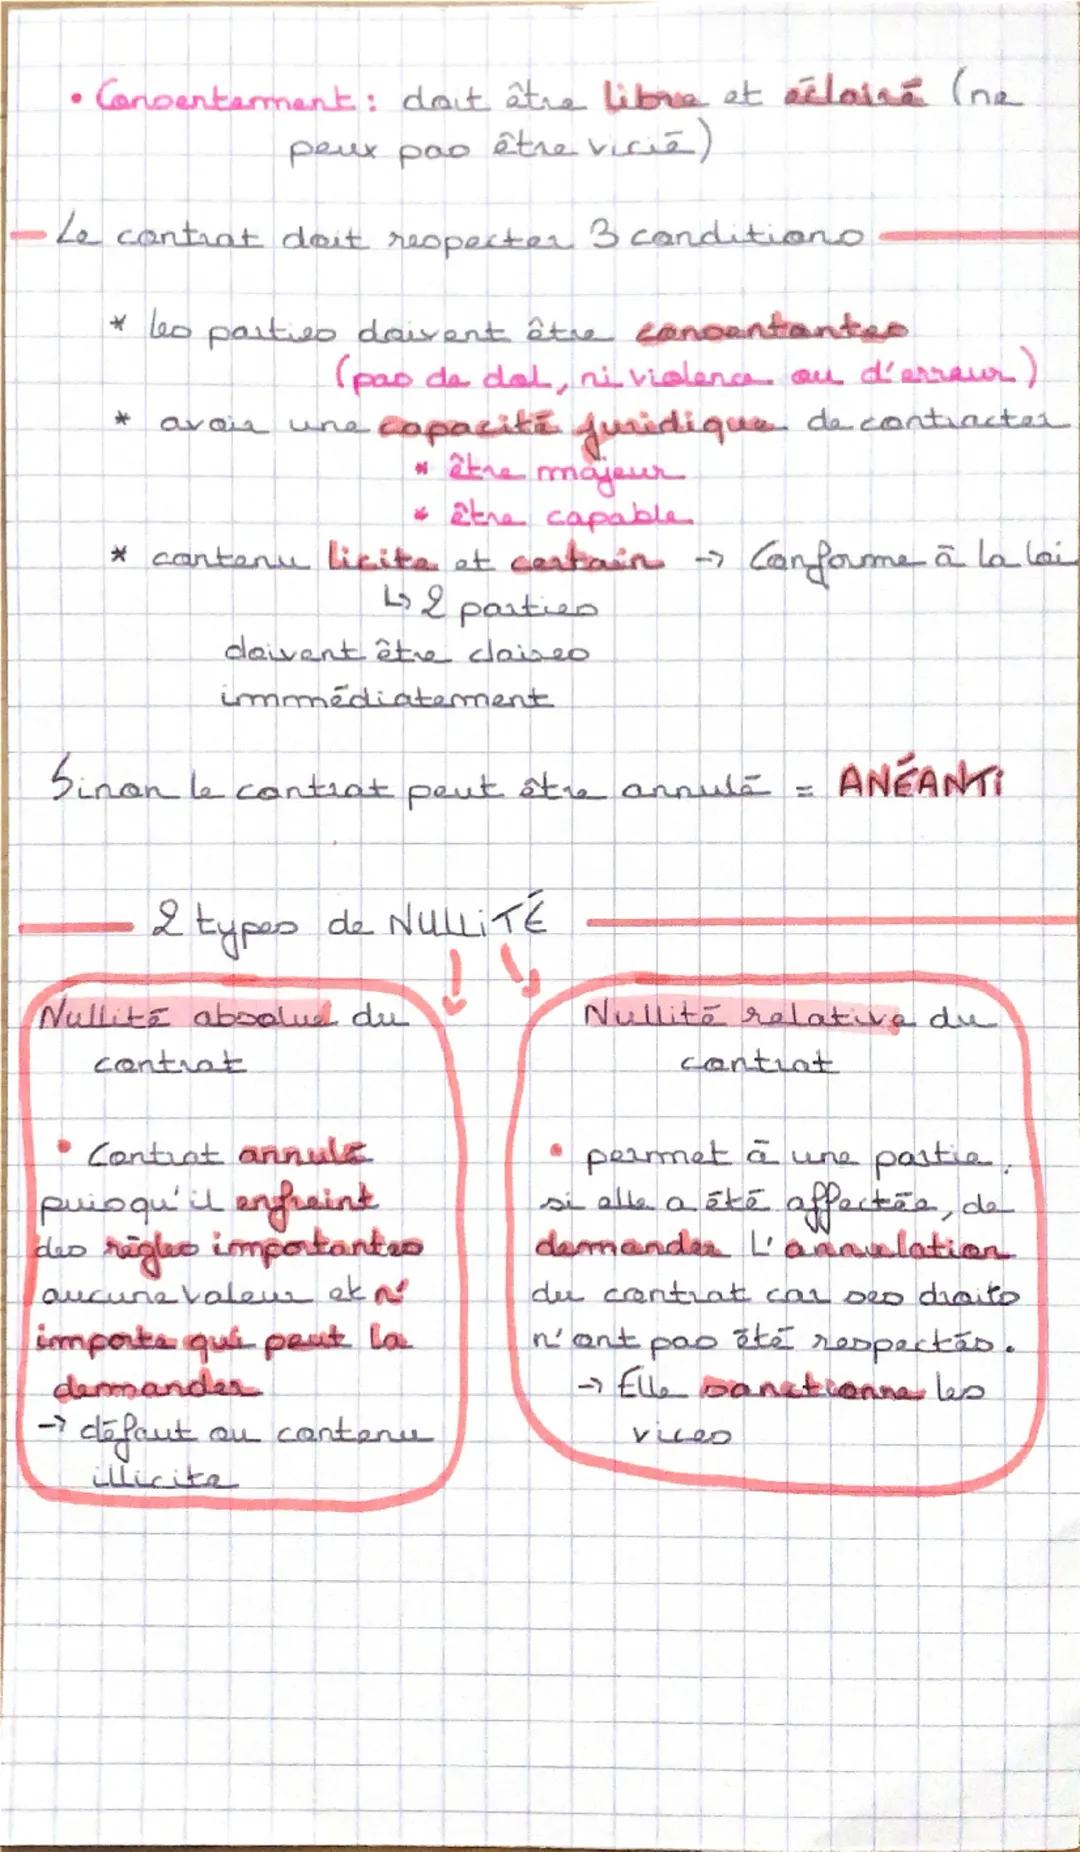 • Consentement : doit être libre et éclairé (ne
peux pas être vicié)
Le contrat doit respecter 3 conditions
* les parties doivent être consentantes
(pas de dol, ni violence ou d'erreur)
* avoir une capacité juridique de contracter
* être majeur
* être capable
* contenu licite et certain → Conforme à la loi
↳ 2 parties
doivent être claires
immédiatement
Sinon le contrat peut être annulé = ANÉANTI
2 types de NULLITÉ
Nullité absolue du
contrat
• Contrat annulé
puisqu'il enfreint
des règles importantes
aucune valeur et n'
importe qui peut la
demander
→ défaut ou contenu
illicite
Nullité relative du
contrat
• permet à une partie,
si elle a été affectée, de
demander l'annulation
du contrat car ses droits
n'ont pas été respectés.
→ Elle sanctionne les
vices